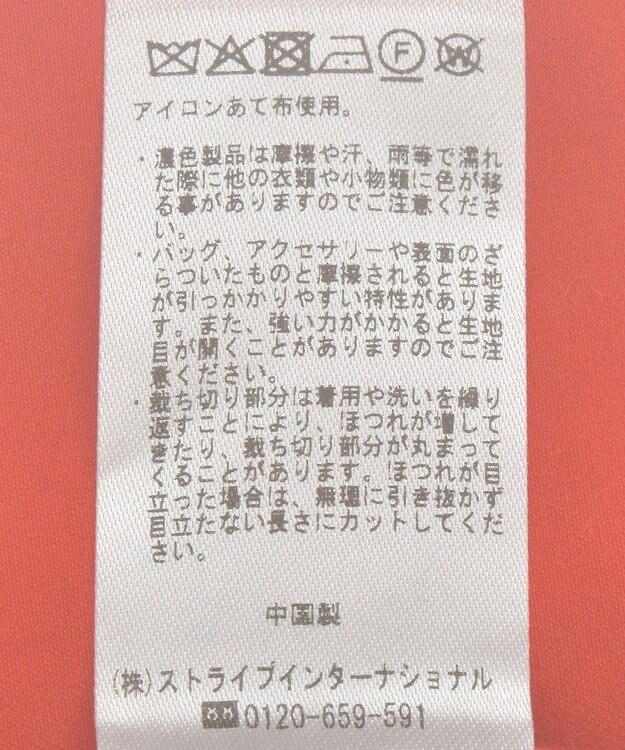 F W
アイロンあて布使用。
・濃色製品は摩擦や汗、雨等で濡れ
た際に他の衣類や小物類に色が移
る事がありますのでご注意くださ
い。
・バッグ、アクセサリーや表面のざ
らついたものと摩擦されると生地
がつっかかりやすい特性があります。
す。引また、強い力がかかるとあり生地
目が開くことがありますのでご注
意ください。
・裁ち切り部分は着用や洗いを繰り
返すとによりほつれが増して
きたり、裁ち切り部分が丸まって
くることがあります。ほつれが目
立った場合は、無理に引き抜かず
目立たない長さにカットしてくだ
さい。
中国製
(株)ストライプインターナショナル
0120-659-591